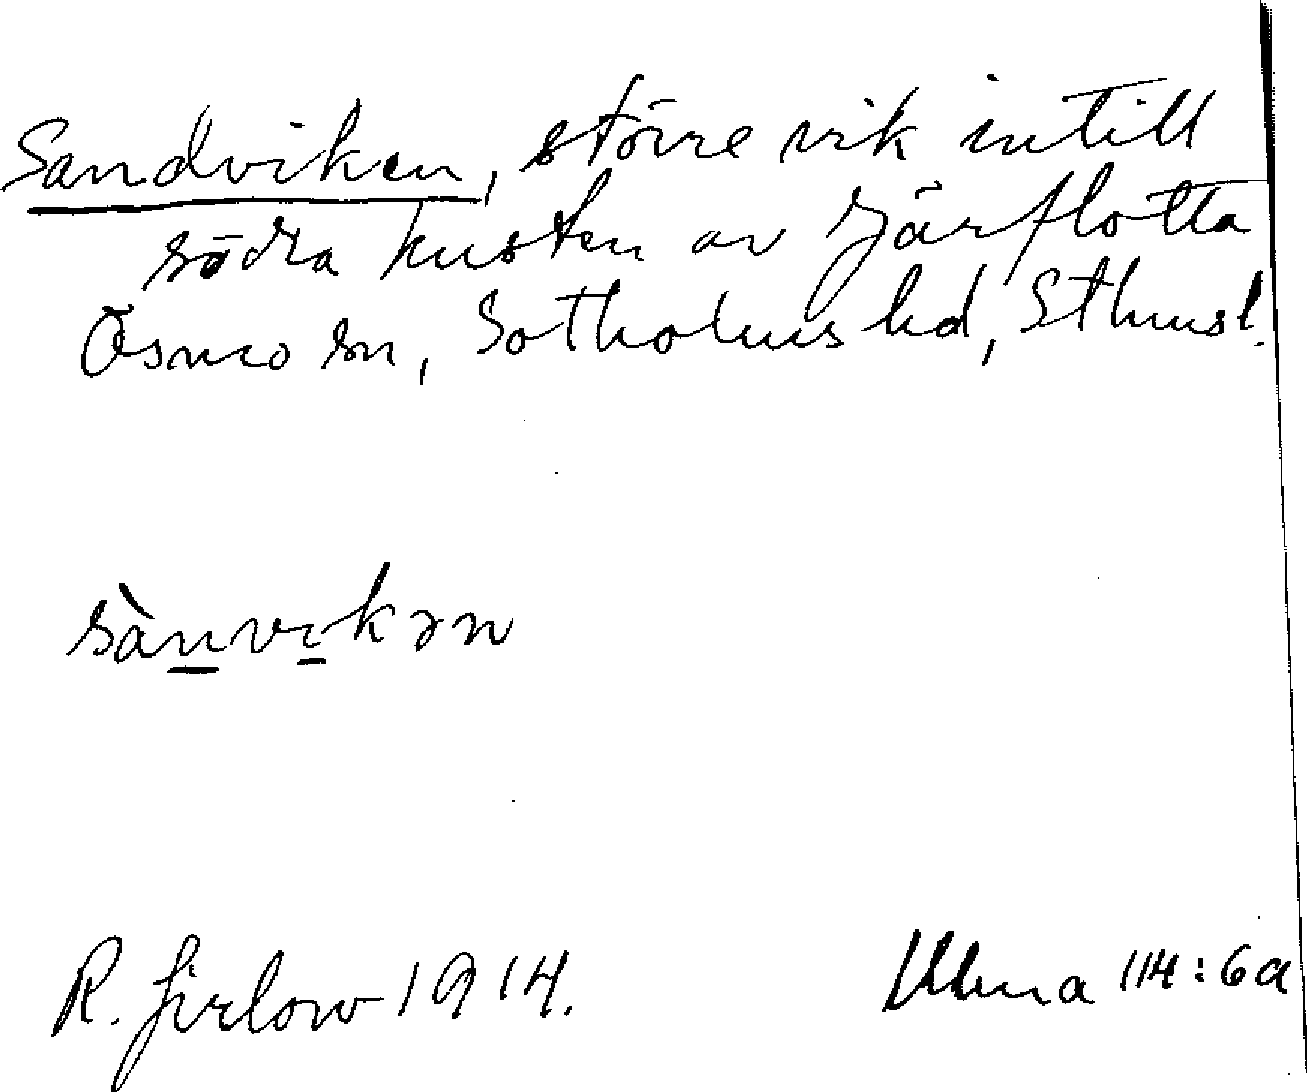 Sandviken, större vik intill
södra kusten av Järflotta
Ösmo sn, Sotholms hd, Sthmsl.
sànvikən
R. Jirlow 1914.
Ulma 114:6a